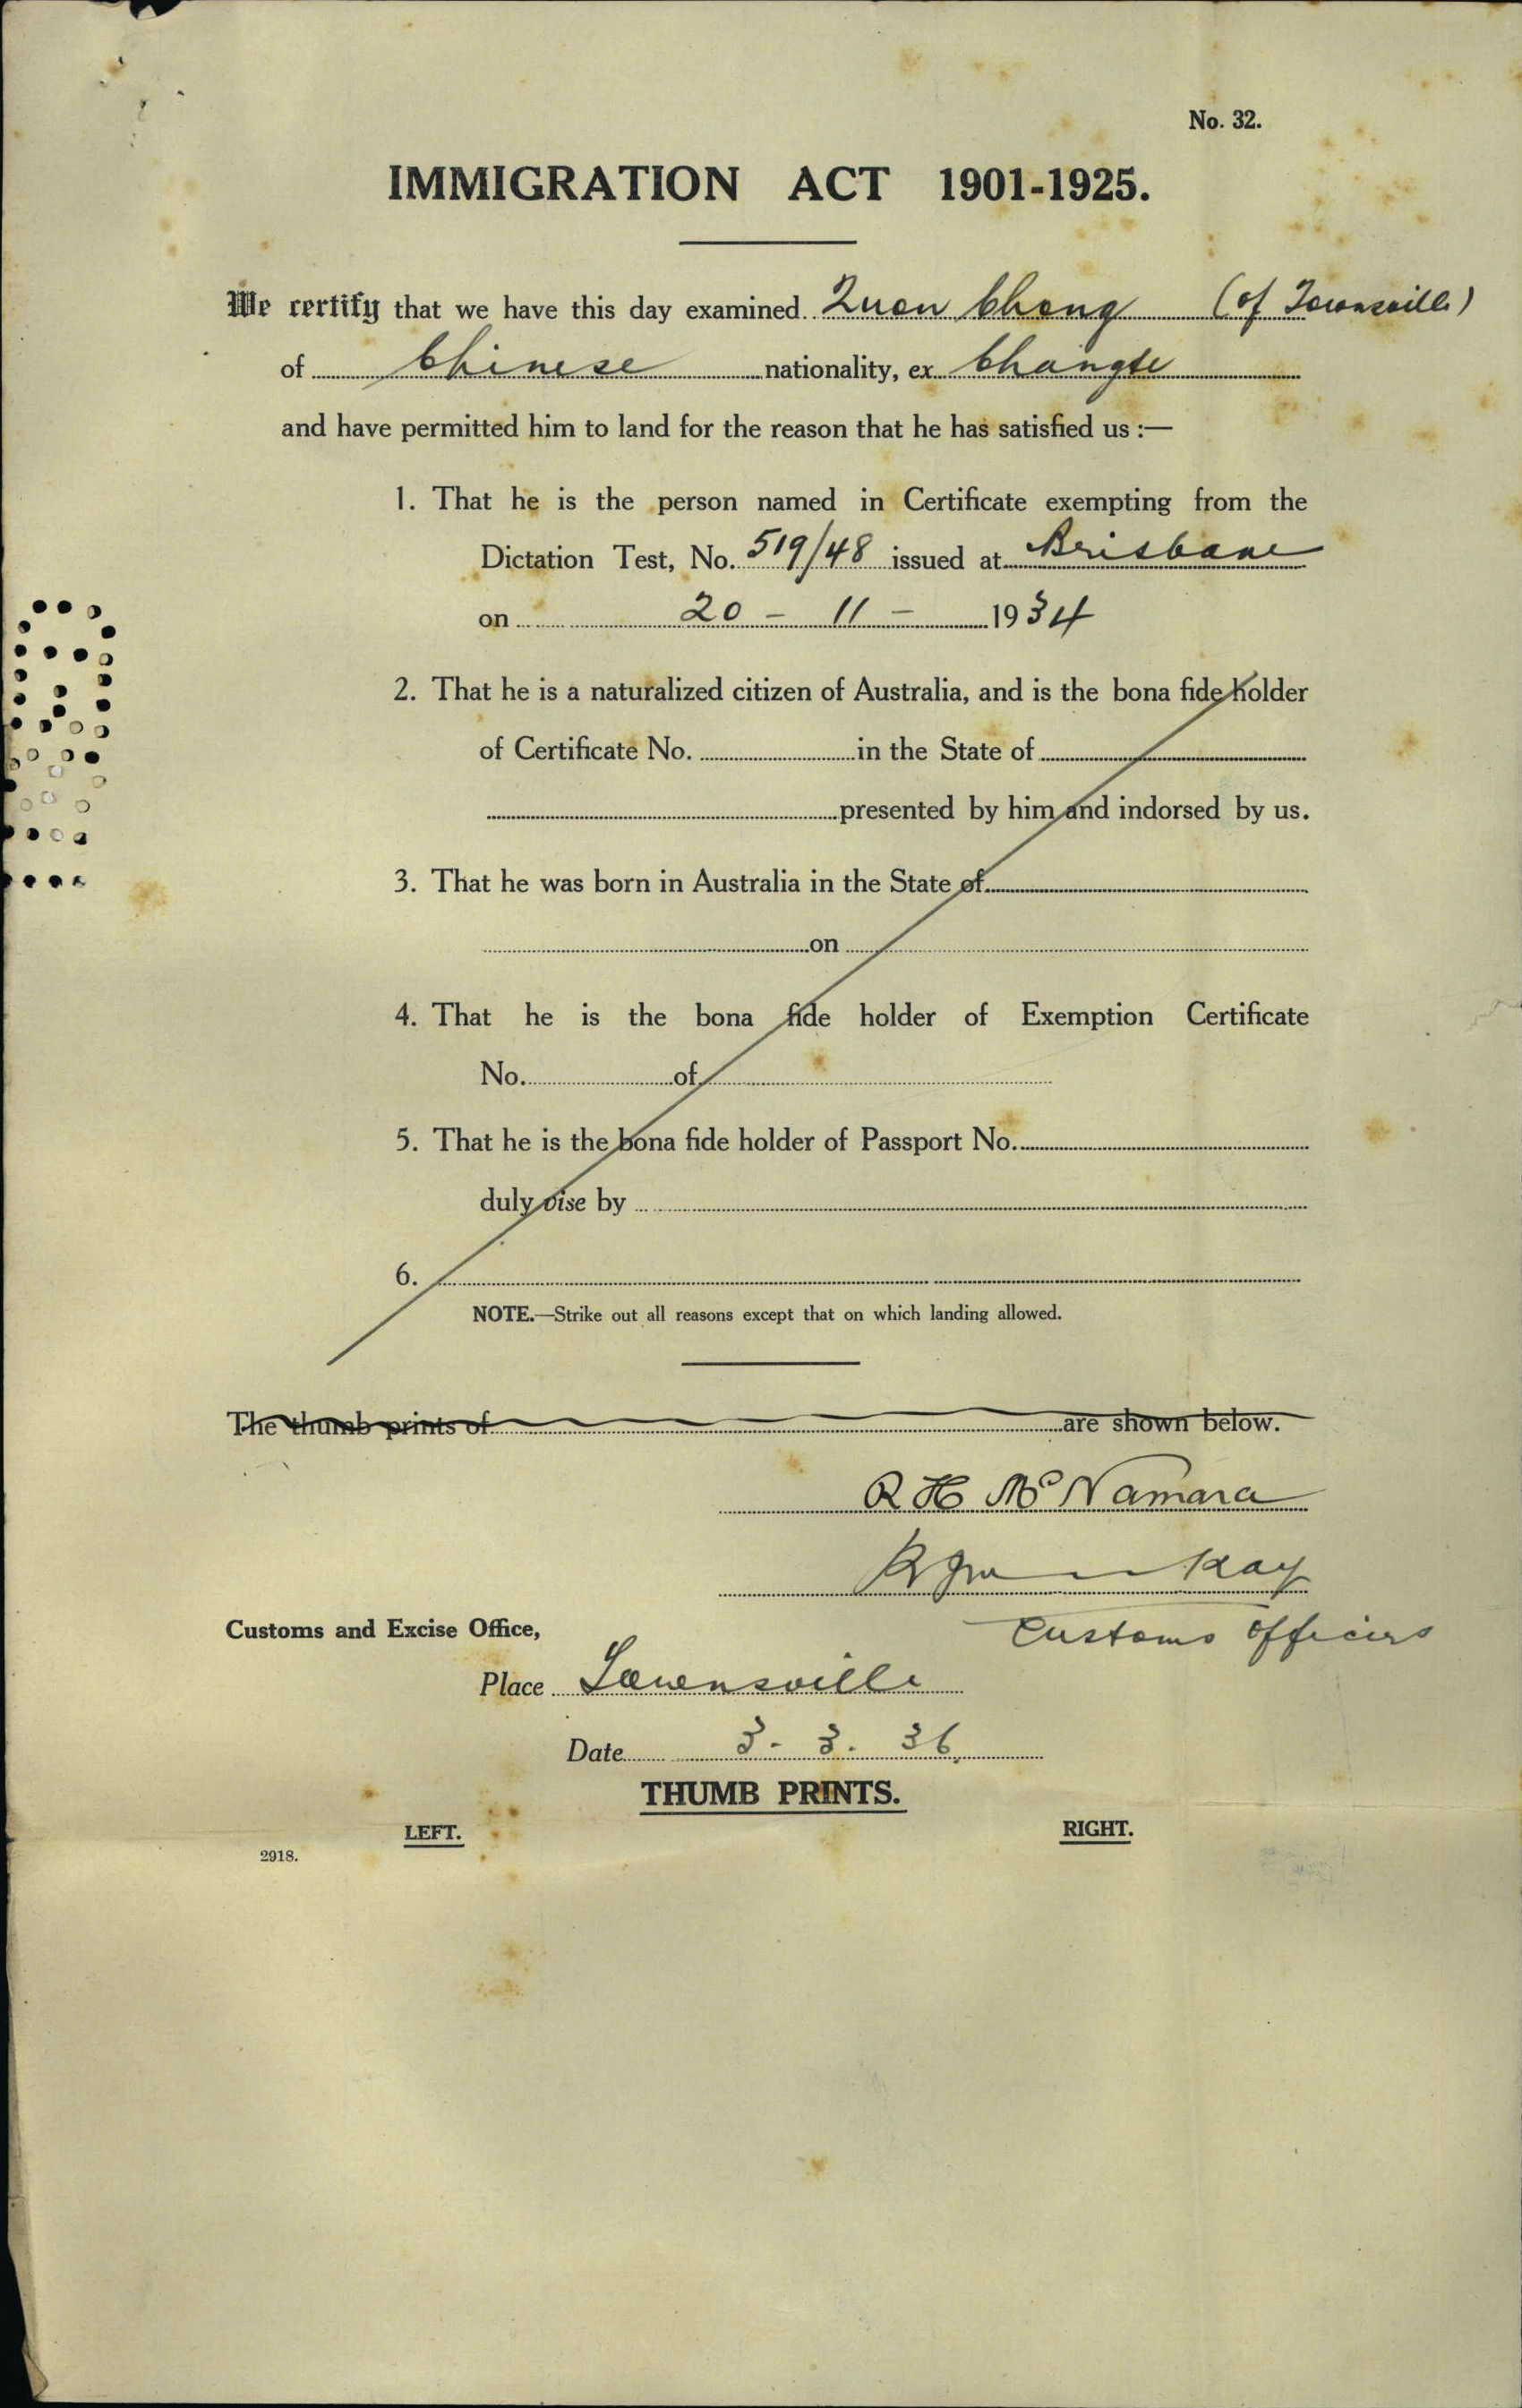 No. 32.
IMMIGRATION ACT 1901-1925.
We certify that we have this day examined Quon Chong (of Townsville)
of Chinese nationality, ex Changte
and have permitted him to land for the reason that he has satisfied us :—
1. That he is the person named in Certificate exempting from the
Dictation Test, No. 519/48 issued at Brisbane
on 20 - 11 - 1934
2. That he is a naturalized citizen of Australia, and is the bona fide holder
of Certificate No. in the State of
presented by him and indorsed by us.
3. That he was born in Australia in the State of
on
4. That he is the bona fide holder of Exemption Certificate
No. of
5. That he is the bona fide holder of Passport No.
duly vise by
6.
NOTE.—Strike out all reasons except that on which landing allowed.
The thumb prints of are shown below.
R H McNamara
Kay
Customs and Excise Office,
Customs Officers
Place Townsville
Date 3. 3. 36.
THUMB PRINTS.
LEFT. RIGHT.
2918.